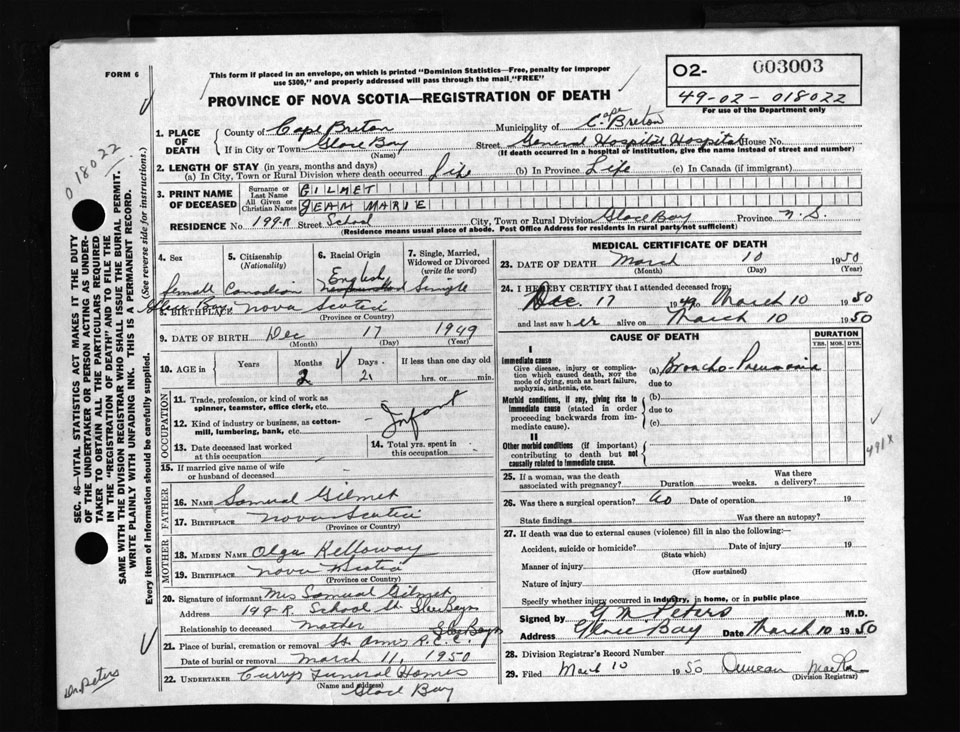 FORM 6
This form if placed in an envelope, on which is printed "Dominion Statistics—Free, penalty for improper
use $300," and properly addressed will pass through the mail "FREE"
02- 003003
49-02-018022
For use of the Department only
PROVINCE OF NOVA SCOTIA—REGISTRATION OF DEATH
018022
1. PLACE OF DEATH
County of Cape Breton Municipality of Cape Breton
If in City or Town Glace Bay Street General Hospital House No.
(Name) (If death occurred in a hospital or institution, give the name instead of street and number)
2. LENGTH OF STAY (in years, months and days)
(a) In City, Town or Rural Division where death occurred Life (b) In Province Life (c) In Canada (if immigrant)
3. PRINT NAME OF DECEASED
Surname or Last Name GILMET
All Given or Christian Names JEAN MARIE
RESIDENCE No 199-R Street School City, Town or Rural Division Glace Bay Province N.S.
(Residence means usual place of abode. Post Office Address for residents in rural parts not sufficient)
4. Sex 5. Citizenship (Nationality) 6. Racial Origin 7. Single, Married, Widowed or Divorced (write the word)
female Canadian English Single
8. BIRTHPLACE Glace Bay Nova Scotia
(Province or Country)
9. DATE OF BIRTH Dec 17 1949
(Month) (Day) (Year)
10. AGE in Years Months Days If less than one day old
2 21 hrs. or min.
OCCUPATION
11. Trade, profession, or kind of work as
spinner, teamster, office clerk, etc.
Infant
12. Kind of industry or business, as cotton-
mill, lumbering, bank, etc.
13. Date deceased last worked
at this occupation
14. Total yrs. spent in
this occupation
15. If married give name of wife
or husband of deceased
FATHER
16. NAME Samuel Gilmet
17. BIRTHPLACE Nova Scotia
(Province or Country)
MOTHER
18. MAIDEN NAME Olga Kelloway
19. BIRTHPLACE Nova Scotia
(Province or Country)
20. Signature of informant Mrs Samual Gilmet
Address 199-R. School St. Glace Bay
Relationship to deceased mother
21. Place of burial, cremation or removal St Anns R.C.C. Glace Bay
Date of burial or removal March 11, 1950
22. UNDERTAKER Currys Funeral Homes
(Name and address)
Glace Bay
MEDICAL CERTIFICATE OF DEATH
23. DATE OF DEATH March 10 1950
(Month) (Day) (Year)
24. I HEREBY CERTIFY that I attended deceased from:
Dec. 17 1949 to March 10 1950
and last saw her alive on March 10 1950
CAUSE OF DEATH DURATION
YRS. MOS. DYS.
I
Immediate cause
Give disease, injury or complica-
tion which caused death, NOT the
mode of dying, such as heart failure,
asphyxia, asthenia, etc.
(a) Broncho-Pneumonia
due to
Morbid conditions, if any, giving rise to
immediate cause (stated in order
proceeding backwards from im-
mediate cause).
(b)
due to
(c)
II
Other morbid conditions (if important)
contributing to death but not
causally related to immediate cause.
491x
25. If a woman, was the death
associated with pregnancy? Duration weeks. Was there
a delivery?
26. Was there a surgical operation? no Date of operation 19
State findings Was there an autopsy?
27. If death was due to external causes (violence) fill in also the following:
Accident, suicide or homicide? Date of injury 19
(State which)
Manner of injury
(How sustained)
Nature of injury
Specify whether injury occurred in industry, in home, or in public place
Signed by G M Peters M.D.
Address Glace Bay Date March 10 1950
28. Division Registrar's Record Number
29. Filed March 10 1950 Duncan
(Division Registrar)
SEC. 46—VITAL STATISTICS ACT MAKES IT THE DUTY
OF THE UNDERTAKER OR PERSON ACTING AS UNDER-
TAKER TO OBTAIN ALL THE PARTICULARS REQUIRED
IN THE "REGISTRATION OF DEATH" AND TO FILE THE
SAME WITH THE DIVISION REGISTRAR WHO SHALL ISSUE THE BURIAL PERMIT.
WRITE PLAINLY WITH UNFADING INK. THIS IS A PERMANENT RECORD.
Every item of information should be carefully supplied. (See reverse side for instructions.)
Dr. Peters